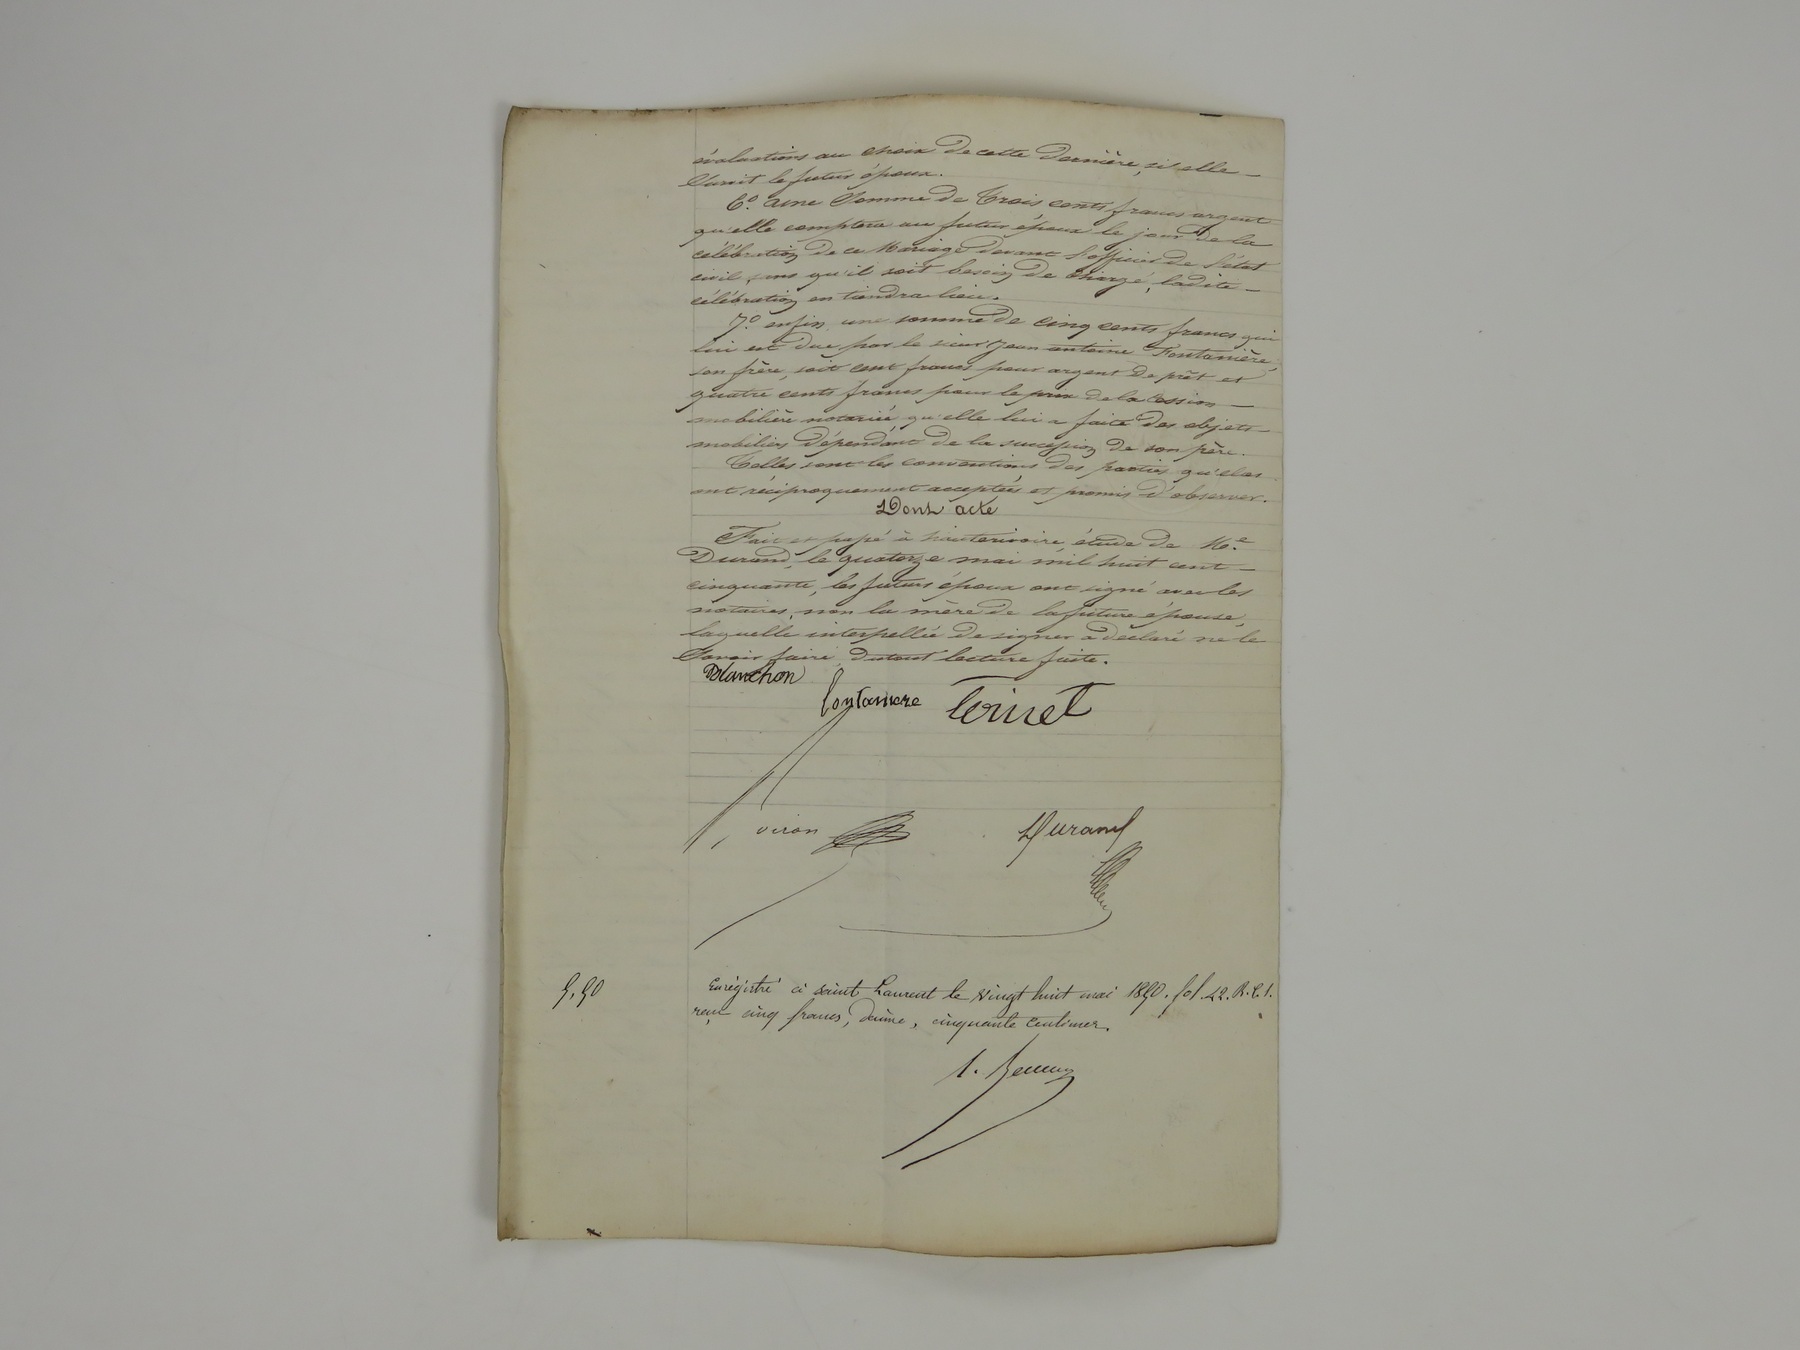 évaluations au choix de cette dernière, si elle
survit le futur époux.
6º. une somme de Trois cents francs argent
qu'elle comptera au futur époux le jour de la
célébration de ce Mariage devant l'officier de l'état
civil, sans qu'il soit besoin de charge, ladite
célébration en tiendra lieu.
7º enfin une somme de cinq cents francs qui
lui est due par le sieur Jean antoine Fontanière,
son frère, soit cent francs pour argent de prêt et
quatre cents francs pour le prix de la cession
mobilière notariée qu'elle lui a faite des objets
mobiliers dépendant de la succession de son père.
Telles sont les conventions des parties qu'elles
ont réciproquement acceptées et promis d'observer.
Dont acte
Fait et passé à hauterivoire étude de Me
Durand, le quatorze mai mil huit cent
cinquante, les futurs époux ont signé avec les
notaires, non la mère de la future épouse,
laquelle interpellée de signer a déclaré ne le
savoir faire, dutout lecture faite.
Blanchon
fontaniere
viron Durand
5,50
Enrégistré à saint Laurent le vingt huit mai 1850. fol. 42. R. C. 1.
reçu cinq francs, décime, cinquante centimes.